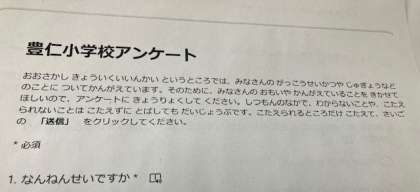 豊仁小学校アンケート
おおさかし きょういくいいんかい というところでは、みなさんの がっこうせいかつや じゅぎょうなど
のことに ついてかんがえています。そのために、みなさんの おもいや かんがえていることを きかせて
ほしいので、アンケートに きょうりょくして ください。しつもんのなかで、わからないことや、こたえ
られないことは こたえずに とばしても だいじょうぶです。こたえられるところだけ こたえて、さいご
の 「送信」 をクリックしてください。
* 必須
1. なんねんせいですか *